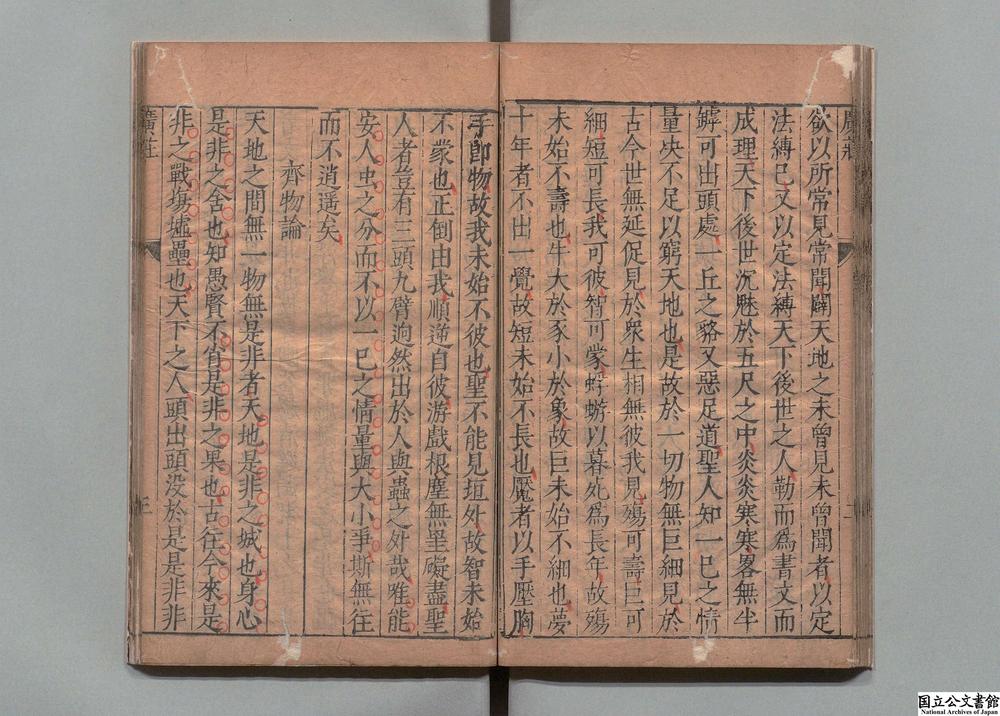 廣莊
欲以所常見常聞闢天地之未曾見未曾聞者以定
法縛己又以定法縛天下後世之人勒而爲書文而
成理天下後世沉魅於五尺之中炎炎寒寒畧無半
罅可出頭處一丘之貉又惡足道聖人知一巳之情
量决不足以窮天地也是故於一切物無巨細見於
古今世無延促見於衆生相無彼我見殤可壽巨可
細短可長我可彼智可蒙蜉蝣以暮死為長年故殤
未始不壽也牛大於豕小於象故巨未始不細也夢
十年者不出一覺故短未始不長也魘者以手壓胸
二
手卽物故我未始不彼也聖不能見垣外故智未始
不蒙也正倒由我順逆自彼游戲根塵無罣礙盡聖
人者豈有三頭九臂逈然出於人與蟲之外哉唯能
安人虫之分而不以一巳之情量與大小爭斯無往
而不逍遥矣
齊物論
天地之間無一物無是非者天地是非之城也身心
是非之舍也知愚賢不肖是非之果也古往今來是
非之戰塲墟壘也天下之人頭出頭没於是是非非
廣莊
国立公文書館
National Archives of Japan